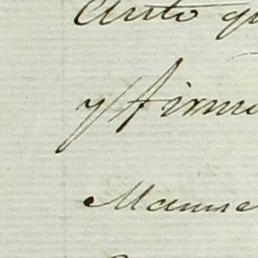 Auto q
y firm
Manue